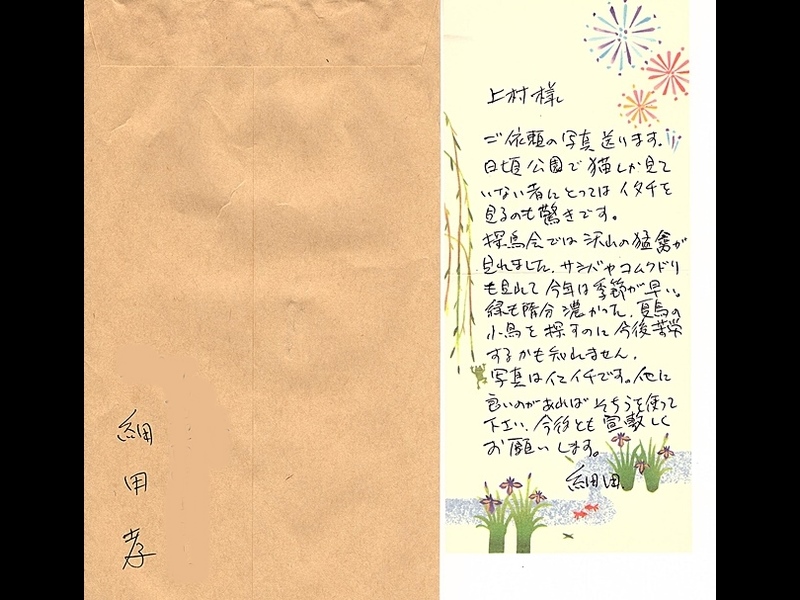 細田孝
上村様
ご依頼の写真送ります。
日頃公園で猫しか見て
いない者にとってはイタチを
見るのも驚きです。
探鳥会では沢山の猛禽が
見れました。サシバやコムクドリ
も見れて今年は季節が早い。
緑も随分濃かった。夏鳥の
小鳥を探すのに今後苦労
するかも知れません。
写真はイマイチです。他に
良いのがあればそちらを使って
下さい。今後とも宜敷しく
お願いします。
細田